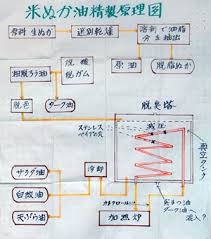 米ぬか油精製原理図
原料生ぬか
選別乾燥
溶剤で油脂
分を抽出
粗脱ろう油
脱糟
脱ガム
原油
脱脂ぬか
脱色
ダーク油
脱臭塔
ステンレス
減圧
真空タンク
冷却
サラダ油
白絞油
天ぷら油
加熱炉
ダーク油へ
混入?